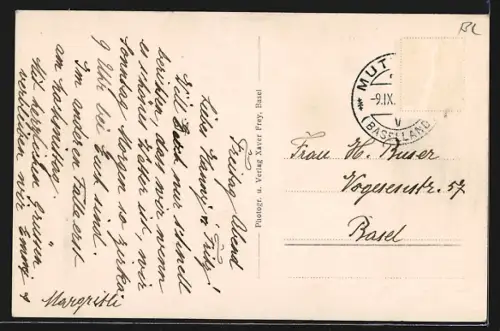 Freitag Abend
Liebe Hanny & Fritz!
Will Euch nur schnell
berichten, dass wir wenn
es schönes Wetter ist, wir
Sonntag Morgen so zirka
9 Uhr bei Euch sind.
Im anderen Falle erst
am Nachmittag.
Mit herzlichen Grüssen
verbleiben wir Emmy &
Margritli
Photogr. u. Verlag Xaver Frey, Basel
BL
MUT
-9.IX.
V
(BASELLAND)
Frau H. Buser
Vogesenstr. 57
Basel